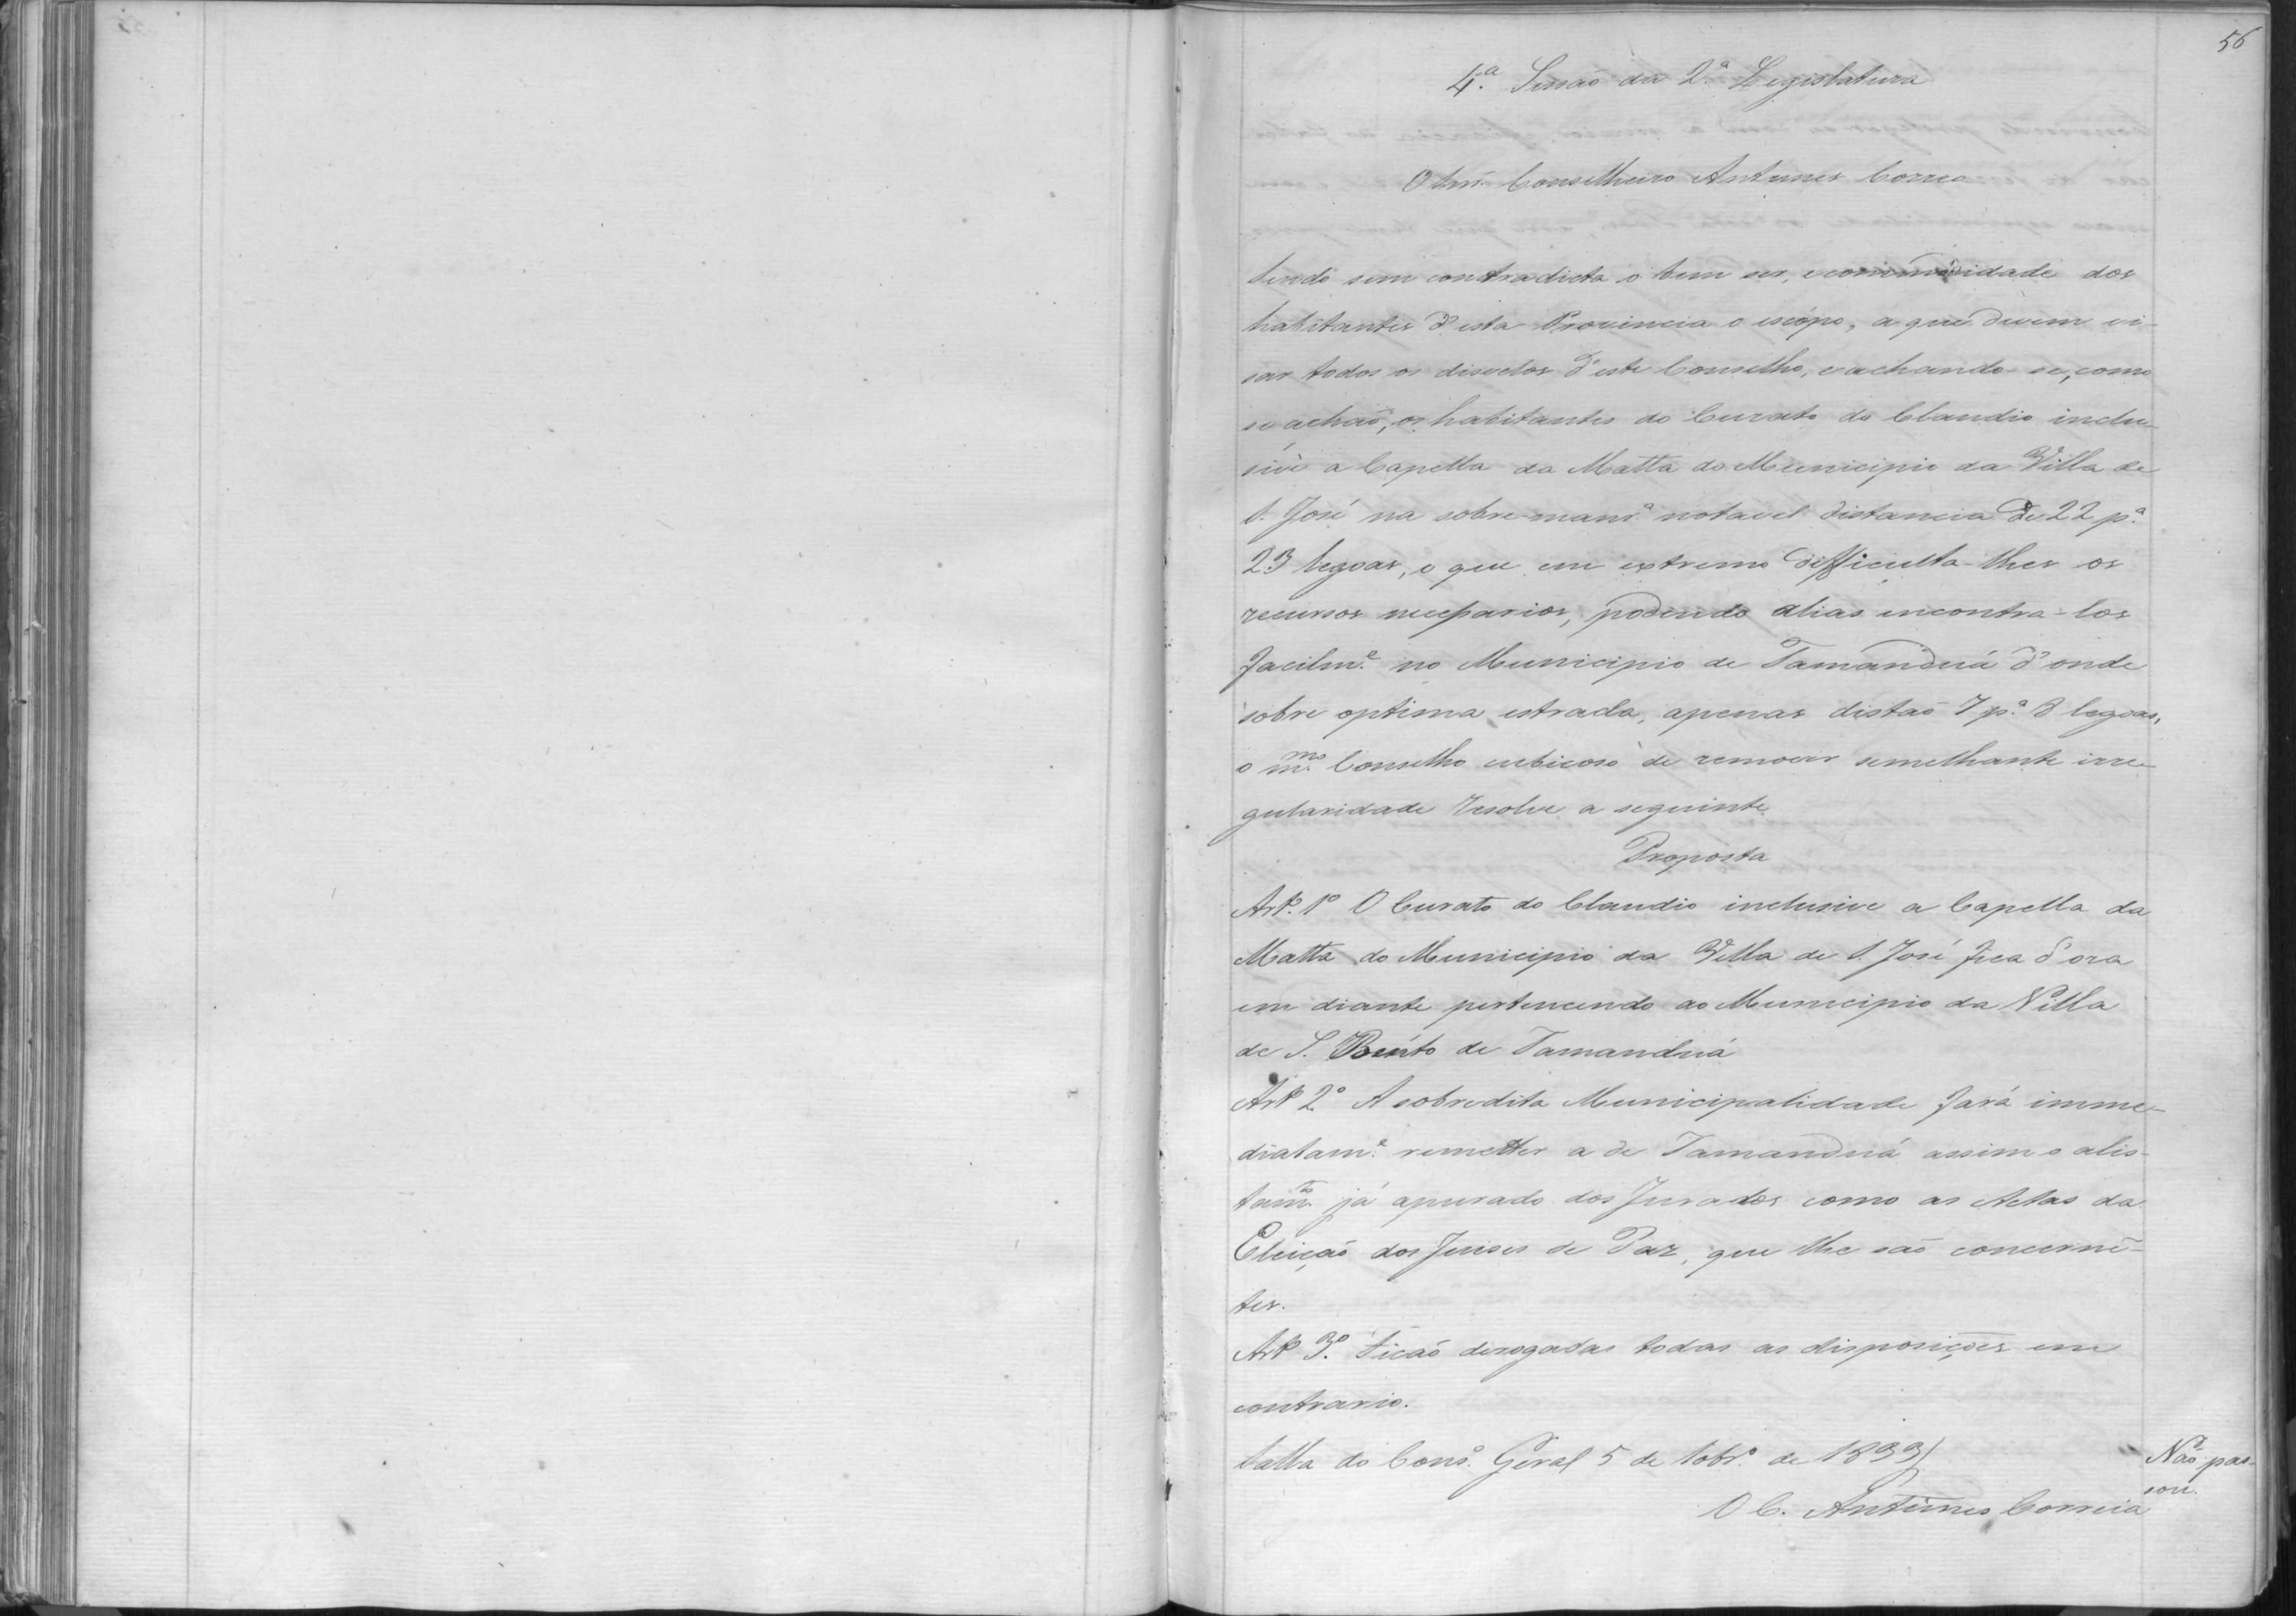 56
4.ª Sessaõ da 2.ª Legislatura
O Snr. Conselheiro Antunes Correa
Sendo sem contradicta o bem ser, e commodidade dos
habitantes d'esta Provincia o escópo, a que devem vi-
sar todos os disvelos d'este Conselho, e achando-se, como
se achaõ, os habitantes do Curato do Claudio inclu-
sive a Capella da Matta do Municipio da Villa de
S. José na sobre-manr.ª notavel distancia de 22 p.ª
23 legoas, o que em extremo difficulta-lhes os
recursos necessarios, podendo alias encontra-los
facilm.e no Municipio de Tamanduá d'onde
sobre optima estrada, apenas distaõ 7 p.ª 8 legoas,
o m.mo Conselho cubiçoso de remover semelhante irre-
gularidade resolve a seguinte
Proposta
Art.º 1º O Curato do Claudio inclusive a Capella da
Matta do Municipio da Villa de S. José fica d'ora
em diante pertencendo ao Municipio da Villa
de S. Bento de Tamanduá
Artº 2.º A sobredita Municipalidade fará imme-
diatam.e remetter a de Tamanduá assim o alis-
tam.to já apurado dos Jurados como as Actas da
Eleiçaõ dos Juises de Paz, que lhe saõ concernẽ-
tes.
Artº 3.º Ficaõ derogadas todas as disposições em
contrario.
Salla do Cons.º Geral 5 de 10br.º de 1833
O C. Antunes Correia
Naõ pas-
sou.